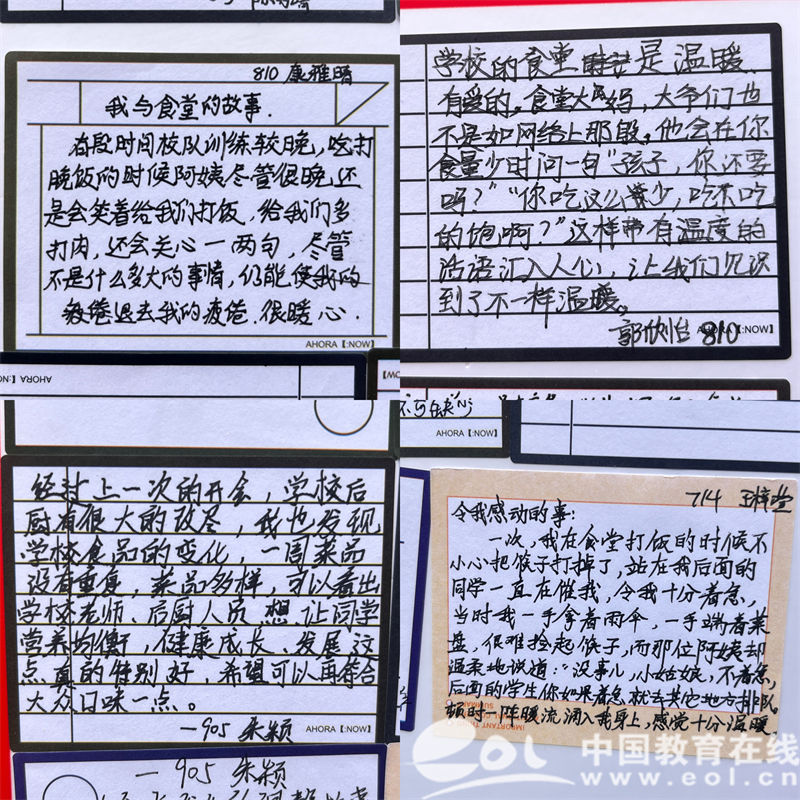 810 康雅晴
我与食堂的故事.
有段时间校队训练较晚,吃打
晚饭的时候阿姨尽管很晚,还
是会笑着给我们打饭,给我们多
打肉,还会关心一两句,尽管
不是什么多大的事情,仍能使我的
疲倦退去我的疲倦.很暖心.
AHORA【:NOW】
学校的食堂 是温暖
有爱的。食堂大 妈,大爷们也
不是如网络上那般。他会在你
食量少时问一句“孩子,你还要
吗?”“你吃这么 少,吃不吃
的饱啊?”这样带有温度的
话语汇入人心,让我们见识
到了不一样温暖。
郭欣怡 810
AHORA【:NOW】
AHORA【:NOW】
不可缺心
AHORA【:NOW】
经过上一次的开会,学校后
厨有很大的改尽,我也发现
学校食品的变化,一周菜品
没有重复,菜品多样,可以看出
学校老师、后厨人员 想 让同学
营养均衡,健康成长、发展 这
点真的特别好,希望可以再符合
大众口味一点。
—905 朱颖
AHORA【:NOW】
—905 朱颖
714 王梓莹
令我感动的事:
一次,我在食堂打饭的时候不
小心把筷子打掉了,站在我后面的
同学一直在催我,令我十分着急,
当时我一手拿着雨伞,一手端着菜
盘,很难捡起筷子,而那位阿姨却
温柔地说道:“没事儿,小姑娘,不着急,
后面的学生你如果着急就去其它地方排队
顿时一阵暖流涌入我身上,感觉十分温暖.
eol 中国教育在线
www.eol.cn